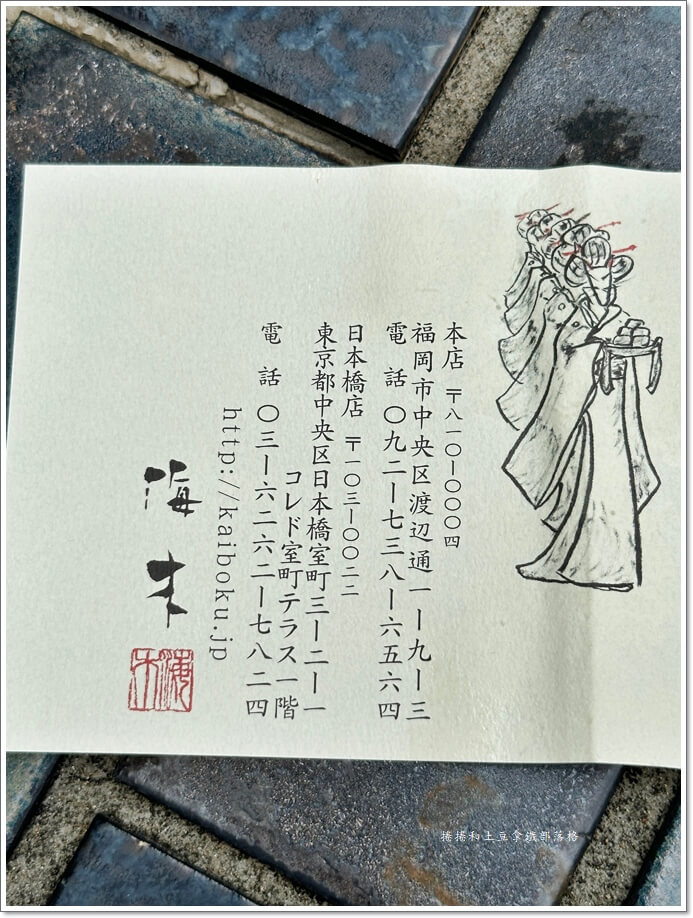 本店 〒八一〇ー〇〇〇四
福岡市中央区渡辺通一ー九ー三
電話 〇九二ー七三八ー六五六四
日本橋店 〒一〇三ー〇〇二二
東京都中央区日本橋室町三ー二ー一
コレド室町テラス一階
電話 〇三ー六二六二ー七八二四
http://kaiboku.jp
海木
海木
捲捲和土豆拿鐵部落格